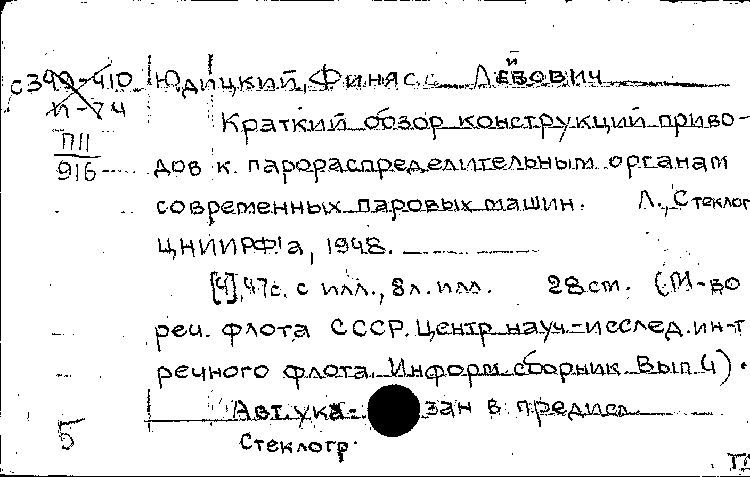 С399-410 Юдицкий, Финясс Лейвович
П-74
Краткий обзор конструкций приво-
П11
916
дов к парораспределительным органам
современных паровых машин. Л., Стеклог
ЦНИИРФ'а, 1948.
[4], 47с. с илл., 8 л. илл. 28 ст. (М-во
реч. флота СССР. Центр науч.-исслед. ин-т
речного флота. Информ. сборник. Вып. 4).
Авт. ука- зан в предисл.
5
Стеклогр.